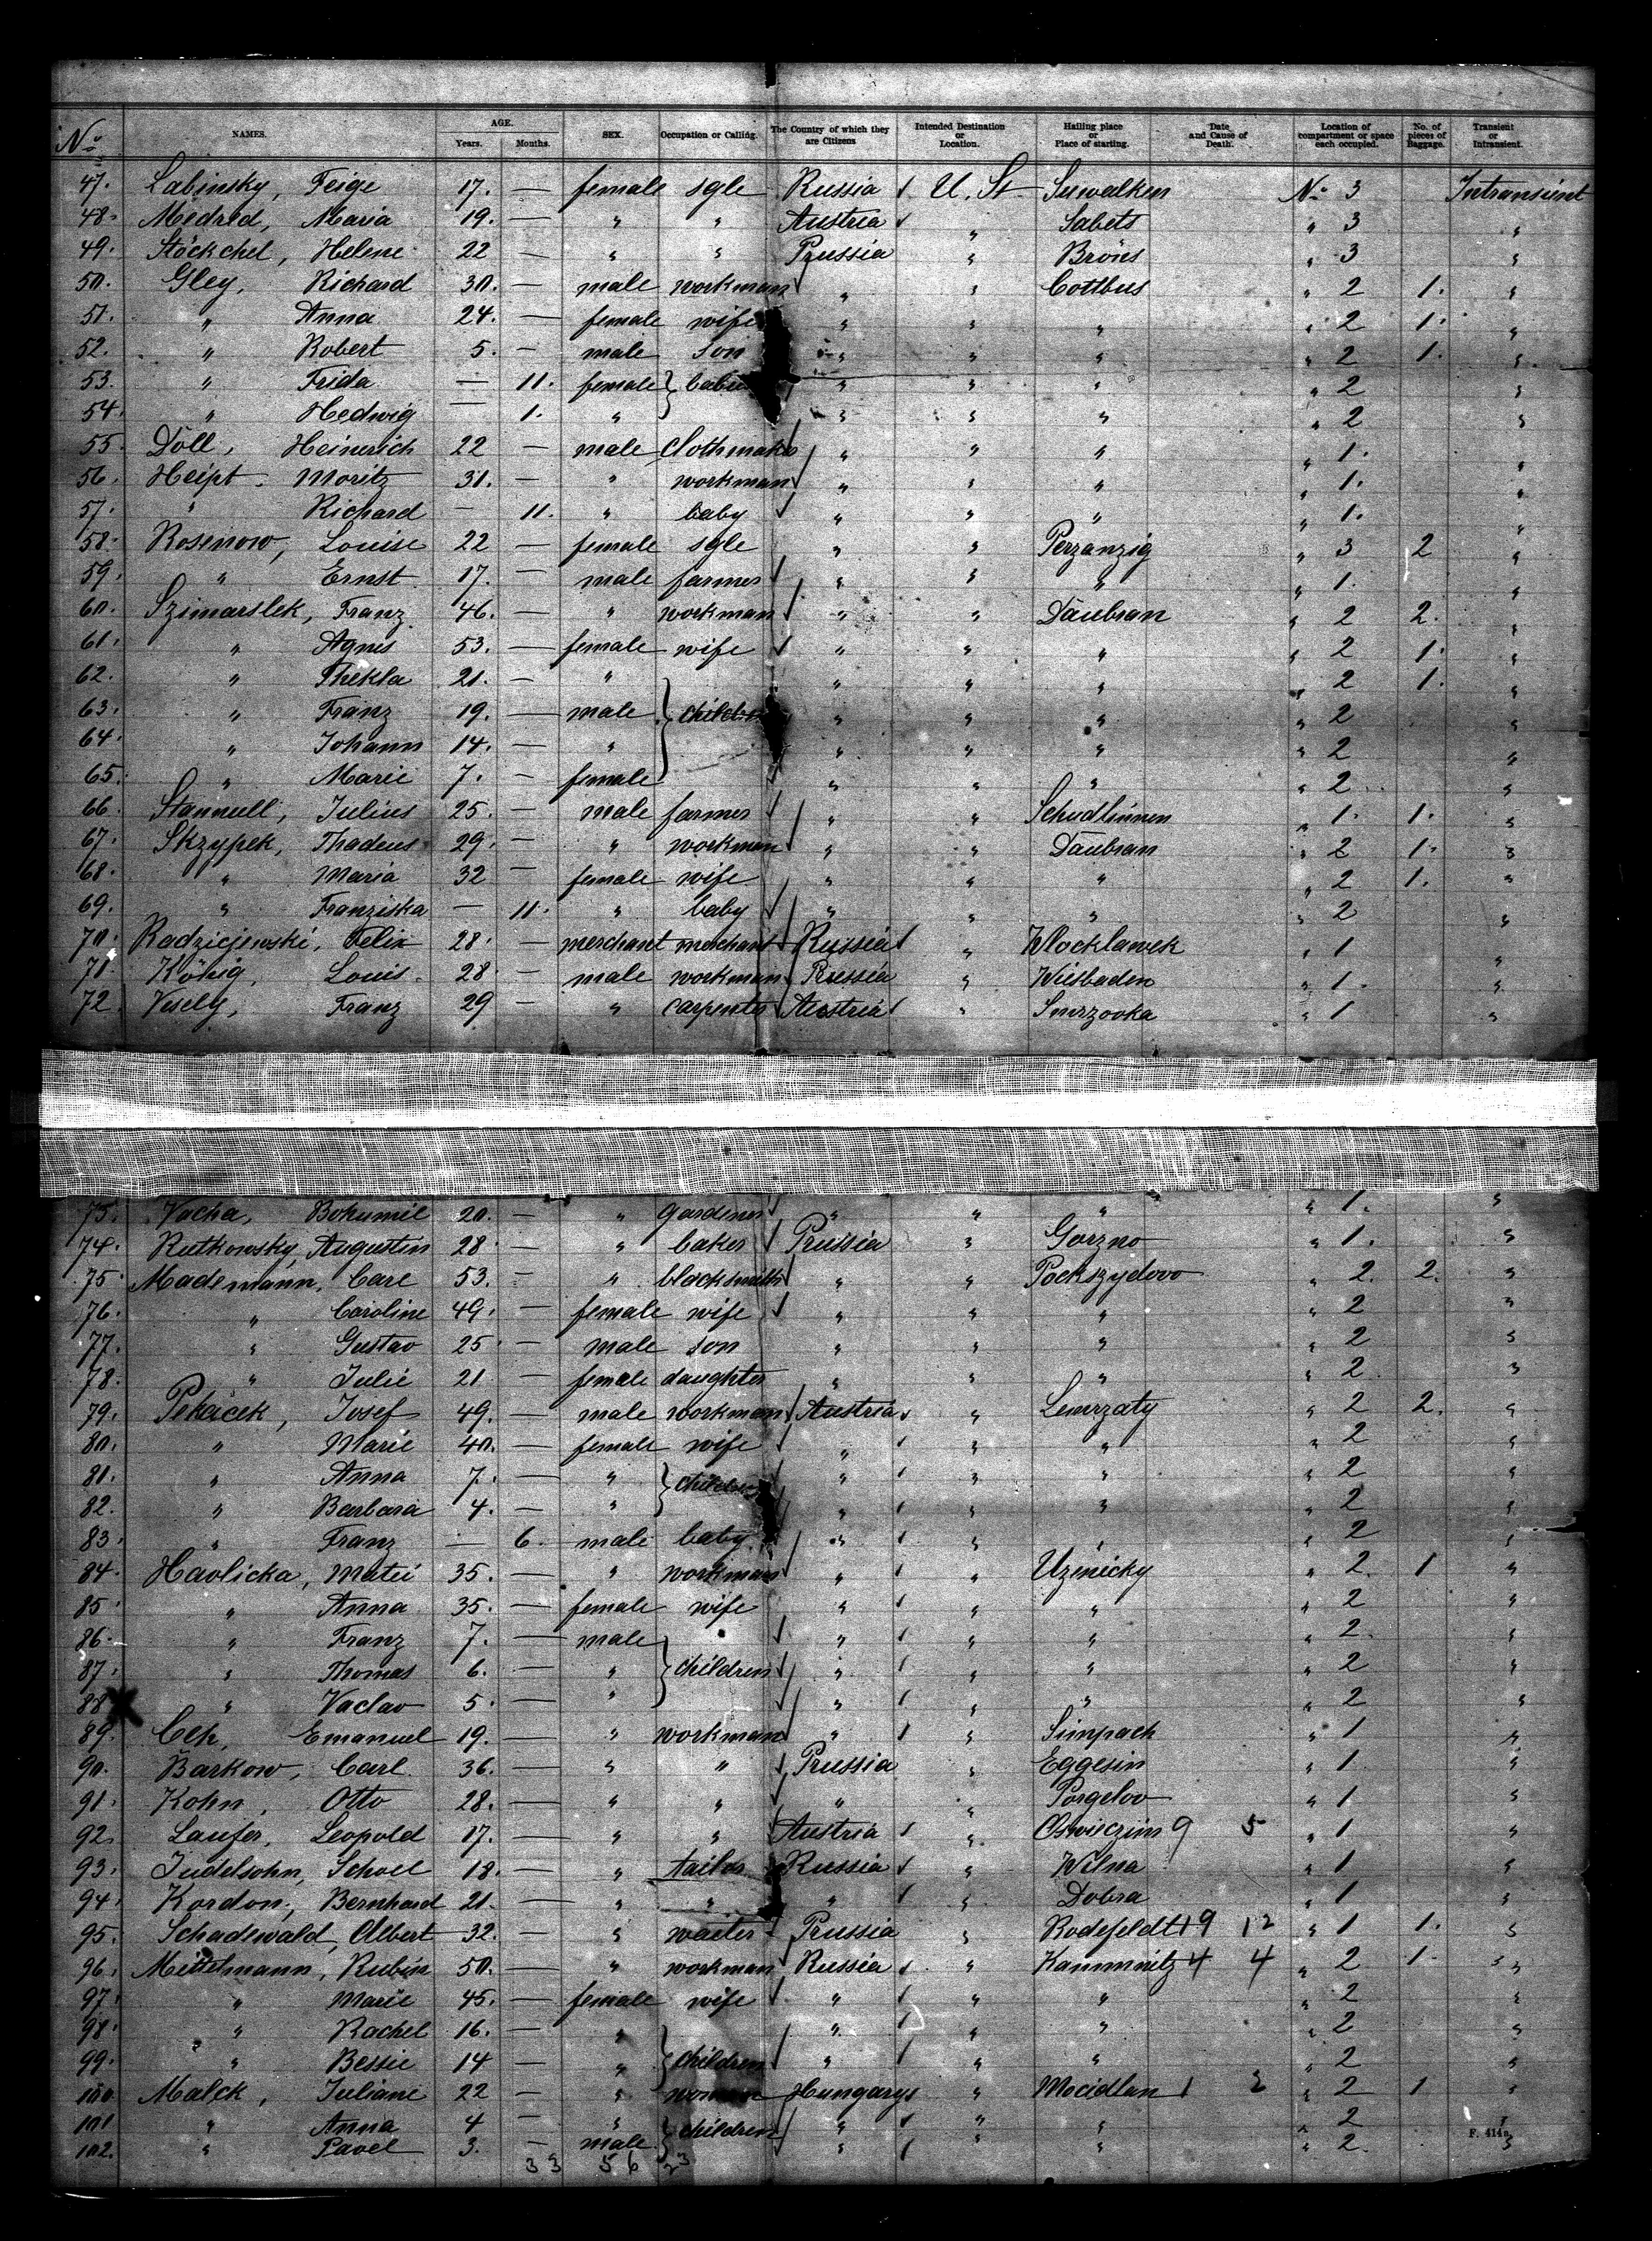 No. NAMES. AGE. Years. Months. SEX. Occupation or Calling. The Country of which they are Citizens Intended Destination or Location. Hailing place or Place of starting. Date and Cause of Death. Location of compartment or space each occupied. No. of pieces of Baggage. Transient or Intransient.
47. Labinsky, Feige 17. — female sgle Russia U. St Suwalken No 3 Intransient
48. Medred, Maria 19. — " " Austria " Sabets " 3 "
49. Stöckchel, Helene 22 — " " Prussia " Bröns " 3 "
50. Gley, Richard 30. — male workman " " Cottbus " 2 1. "
51. " Anna 24. — female wife " " " " 2 1. "
52. " Robert 5. — male son " " " " 2 1. "
53. " Frida — 11. female " " " " 2 "
54. " Hedwig — 1. " " " " " 2 "
55. Döll, Heinrich 22 — male Clothmaker " " " " 1. "
56. Heipt. Moritz 31. — " workman " " " " 1. "
57. " Richard — 11. " baby " " " " 1. "
58. Rosenow, Louise 22 — female sgle " " Perzanzig " 3 2 "
59. " Ernst 17. — male farmer " " " " 1. "
60. Szimarslek, Franz 46. — " workman " " Däubran " 2 2. "
61. " Agnes 53. — female wife " " " " 2 1. "
62. " Thekla 21. — " " " " " 2 1. "
63. " Franz 19. — male children " " " " 2 "
64. " Johann 14. — " " " " " 2 "
65. " Marie 7. — female " " " " 2 "
66. Stannull, Julius 25. — male farmer " " Schudlinnen " 1. 1. "
67. Skzypek, Thadeus 29. — " workman " " Däubran " 2 1. "
68. " Maria 32 — female wife " " " " 2 1. "
69. " Franziska — 11. " baby " " " " 2 "
70. Radziejewski, Felix 28. — merchant merchant Russia " Wlocklawek " 1 "
71. König, Louis. 28. — male workman Prussia " Wiesbaden " 1. "
72. Vesely, Franz 29 — " carpenter Austria " Smrzovka " 1 "
73. Vacha, Bohumil 20. — " gardener " " " " 1. "
74. Rutkowsky, Augustin 28. — " baker Prussia " Gorzno " 1. "
75. Mademann, Carl 53. — " blacksmith " " Pockszydovo " 2. 2. "
76. " Caroline 49. — female wife " " " " 2 "
77. " Gustav 25. — male son " " " " 2 "
78. " Julie 21 — female daughter " " " " 2. "
79. Pekácek, Josef 49. — male workman Austria " Lemrzaty " 2 2. "
80. " Marie 40. — female wife " " " " 2 "
81. " Anna 7. — " children " " " " 2 "
82. " Barbara 4. — " " " " " 2 "
83. " Franz — 6. male baby " " " " 2 "
84. Havlicka, Matei 35. — " workman " " Uzenicky " 2. 1 "
85. " Anna 35. — female wife " " " " 2 "
86. " Franz 7. — male " " " " 2. "
87. " Thomas 6. — " children " " " " 2 "
88. " Vaclav 5. — " " " " " 2 "
89. Cek, Emanuel 19. — " workman " " Simpach " 1 "
90. Barkow, Carl. 36. — " " Prussia " Eggesin " 1. "
91. Kohn, Otto 28. — " " " " Porgelow " 1 "
92. Laufer, Leopold 17. — " " Austria " Oswieczim 9 5 " 1 "
93. Judelsohn, Scholl 18. — " tailor Russia " Wilna " 1 "
94. Kordon, Bernhard 21. — " " " " Dobra " 1 "
95. Schadewald, Albert 32. — " waiter Prussia " Rodefeldt 19 12 " 1 1. "
96. Meitelmann, Rubin 50. — " workman Russia " Kamminitz 4 4 " 2 1. "
97. " Marie 45. — female wife " " " " 2 "
98. " Rachel 16. — " " " " " 2 "
99. " Bessie 14 — " children " " " " 2 "
100. Malck, Juliane 22 — " woman Hungary " Mocidlan 1 2 " 2 1 "
101 " Anna 4 — " children " " " " 2 "
102. " Pavel 3. — male " " " " 2. "
F. 414a
33 56 23